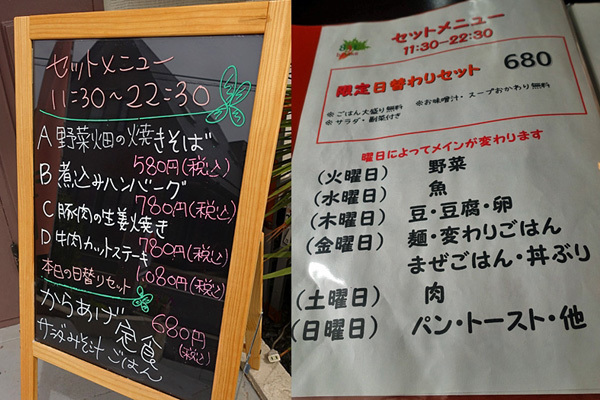 セットメニュー
11:30～22:30
A 野菜畑の焼きそば
580円(税込)
B 煮込みハンバーグ
780円(税込)
C 豚肉の生姜焼き
780円(税込)
D 牛肉カットステーキ
1,080円(税込)
本日の日替りセット
からあげ定食
680円(税込)
サラダみそ汁 ごはん
セットメニュー
11:30ー22:30
限定日替わりセット 680
※ごはん大盛り無料 ※お味噌汁・スープおかわり無料
※サラダ・副菜付き
曜日によってメインが変わります
(火曜日) 野菜
(水曜日) 魚
(木曜日) 豆・豆腐・卵
(金曜日) 麺・変わりごはん
まぜごはん・丼ぶり
(土曜日) 肉
(日曜日) パン・トースト・他